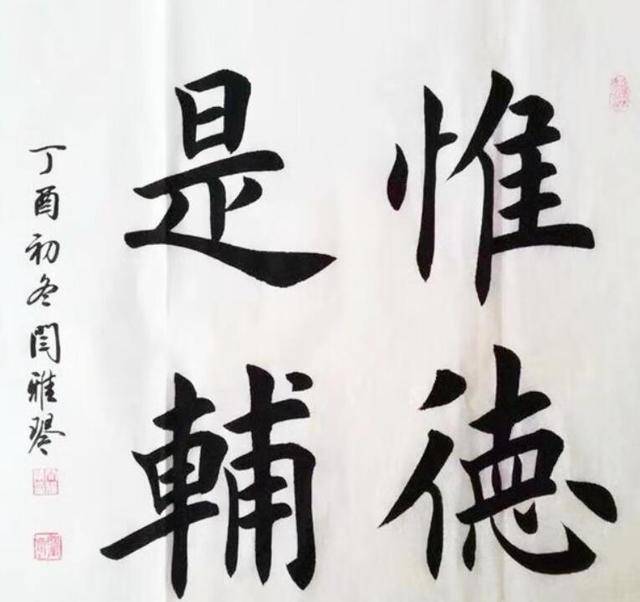 惟德
是輔
丁酉初冬閆雅琴